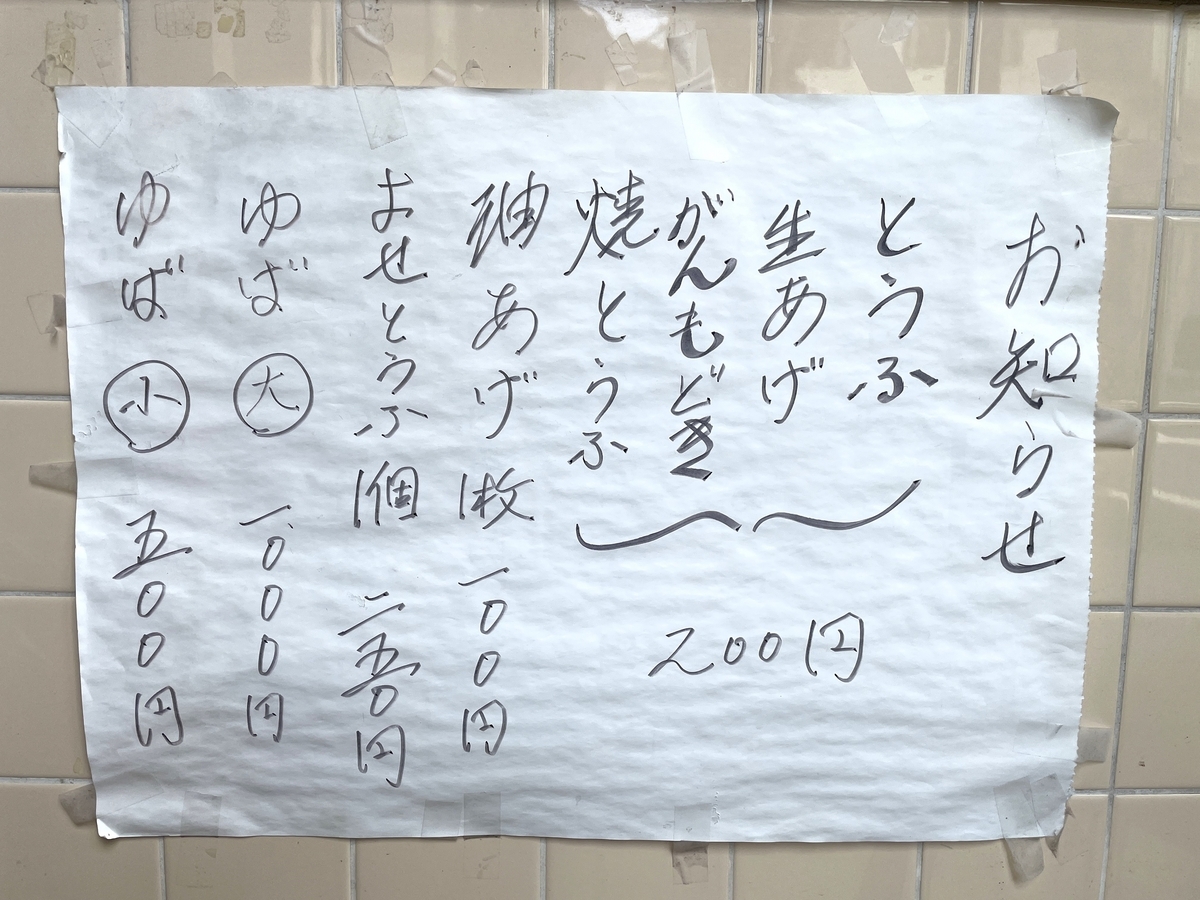 お知らせ
とうふ
生あげ
がんもどき
焼とうふ
200円
油あげ 1枚 一00円
おせとうふ 1個 二五0円
ゆば 大 一000円
ゆば 小 五00円